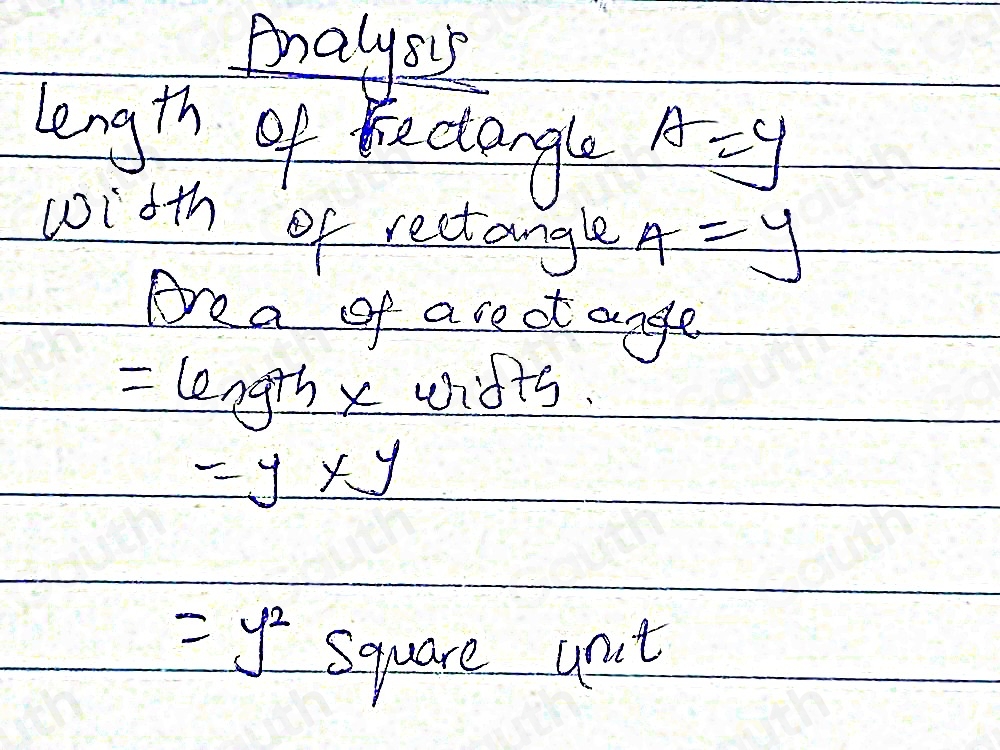 Analysis
Length of rectangle A = y
width of rectangle A = y
Area of a rectangle
= length x width.
= y x y
= y² square unit